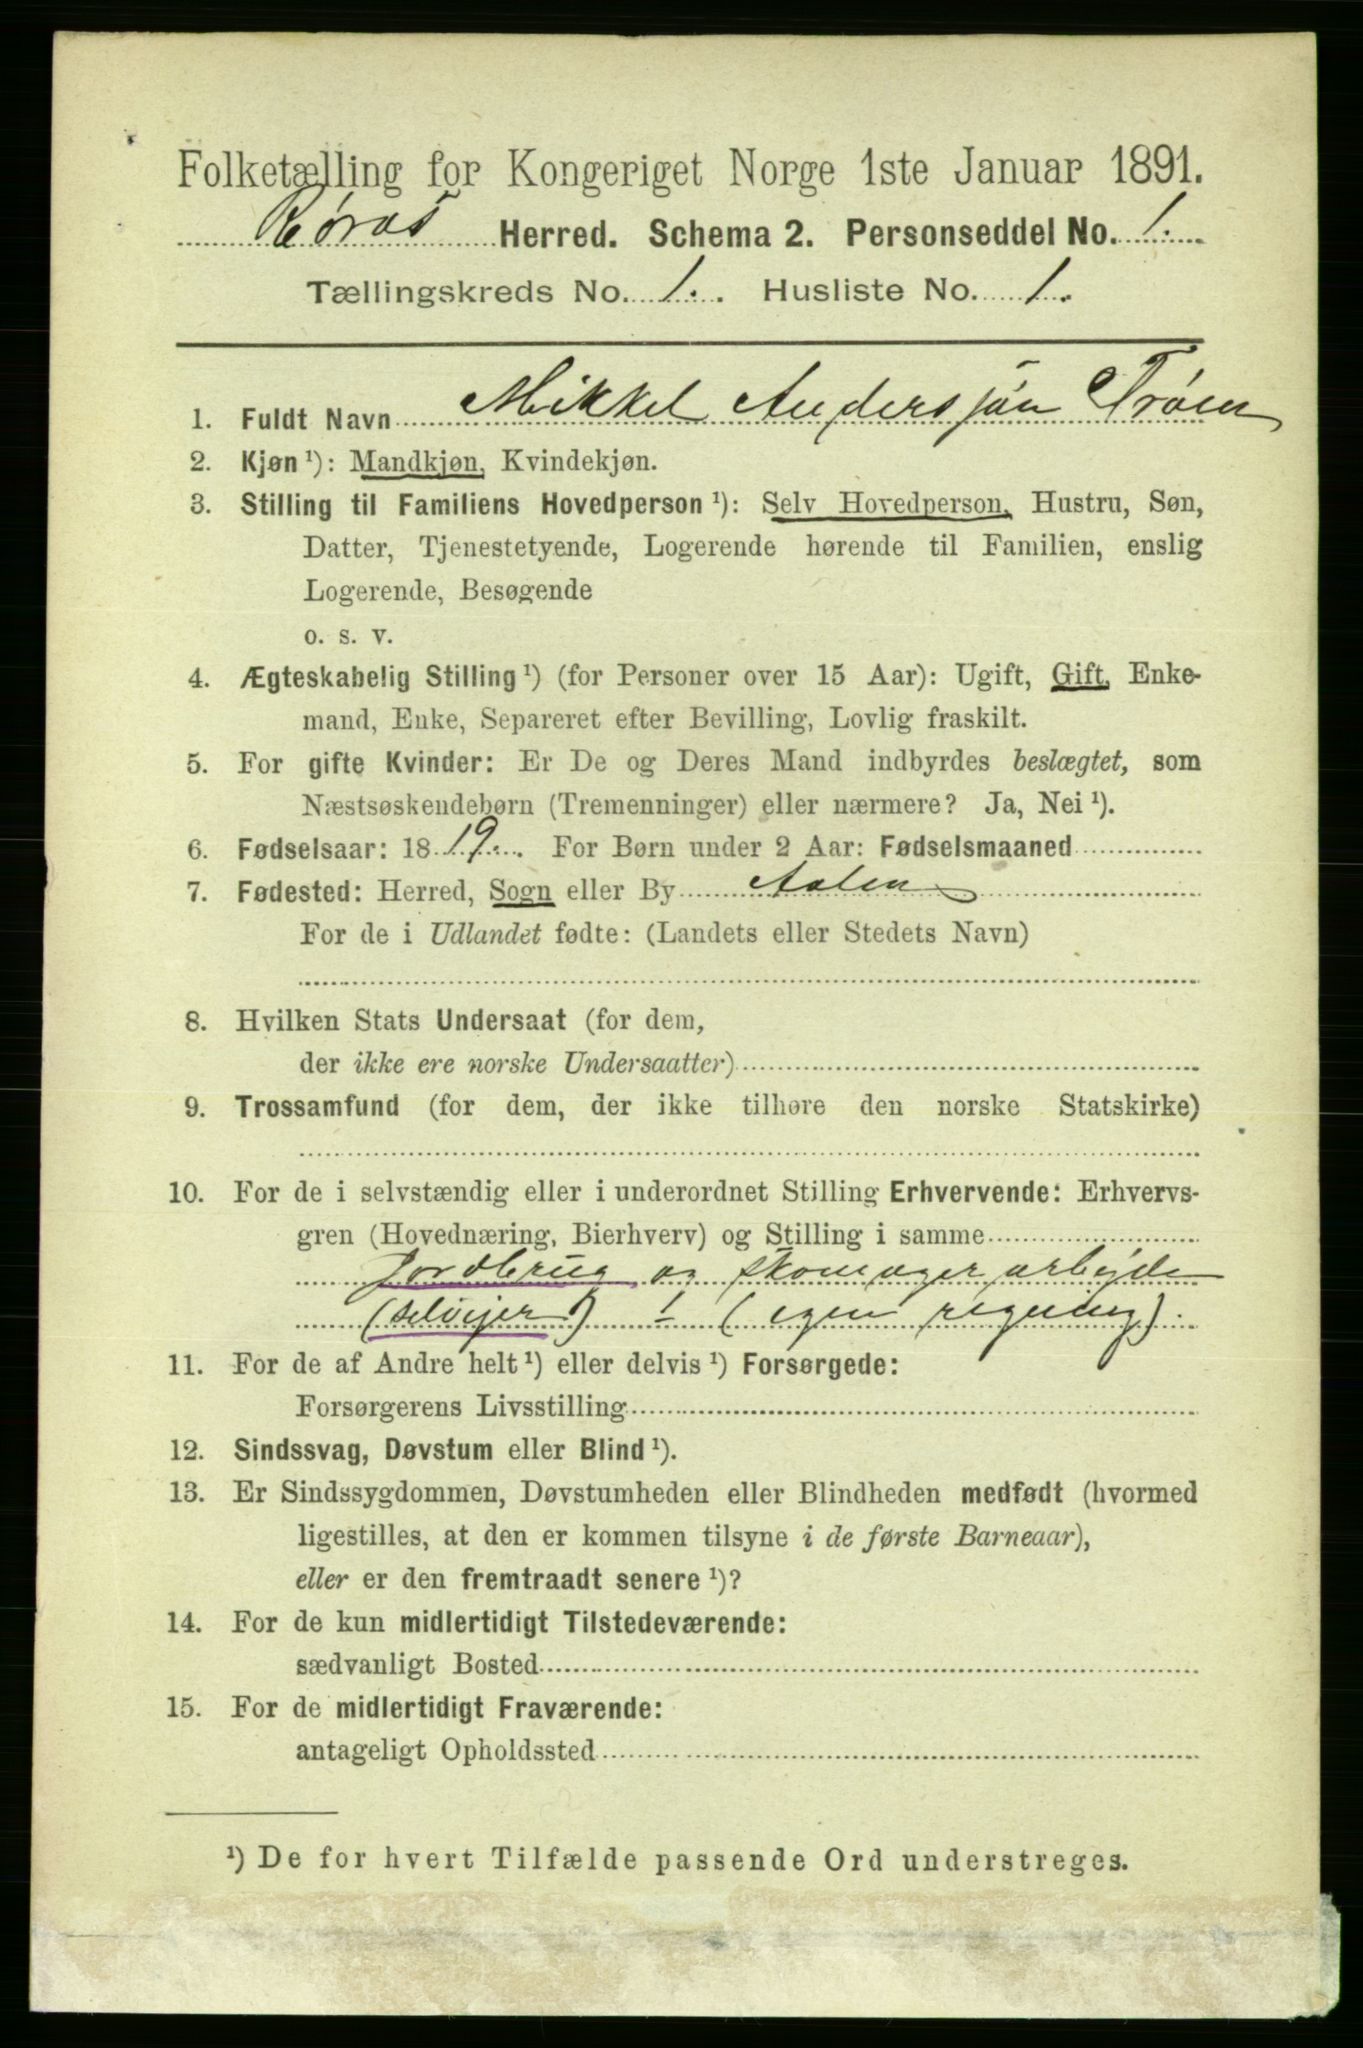 Folketælling for Kongeriget Norge 1ste Januar 1891.
Røros Herred. Schema 2. Personseddel No. 1.
Tællingskreds No. 1. Husliste No. 1.
1. Fuldt Navn Mikkel Andersøn Trøen
2. Kjøn ¹): Mandkjøn, Kvindekjøn.
3. Stilling til Familiens Hovedperson ¹): Selv Hovedperson, Hustru, Søn,
Datter, Tjenestetyende, Logerende hørende til Familien, enslig
Logerende, Besøgende
o. s. v.
4. Ægteskabelig Stilling ¹) (for Personer over 15 Aar): Ugift, Gift, Enke-
mand, Enke, Separeret efter Bevilling, Lovlig fraskilt.
5. For gifte Kvinder: Er De og Deres Mand indbyrdes beslægtet, som
Næstsøskendebørn (Tremenninger) eller nærmere? Ja, Nei ¹).
6. Fødselsaar: 1819. For Børn under 2 Aar: Fødselsmaaned
7. Fødested: Herred, Sogn eller By Aalen
For de i Udlandet fødte: (Landets eller Stedets Navn)
8. Hvilken Stats Undersaat (for dem,
der ikke ere norske Undersaatter)
9. Trossamfund (for dem, der ikke tilhøre den norske Statskirke)
10. For de i selvstændig eller i underordnet Stilling Erhvervende: Erhvervs-
gren (Hovednæring, Bierhverv) og Stilling i samme
Jordbrug og skomagerarbejde
(selvejer) i (egen regning).
11. For de af Andre helt ¹) eller delvis ¹) Forsørgede:
Forsørgerens Livsstilling
12. Sindssvag, Døvstum eller Blind ¹).
13. Er Sindssygdommen, Døvstumheden eller Blindheden medfødt (hvormed
ligestilles, at den er kommen tilsyne i de første Barneaar),
eller er den fremtraadt senere ¹)?
14. For de kun midlertidigt Tilstedeværende:
sædvanligt Bosted
15. For de midlertidigt Fraværende:
antageligt Opholdssted
¹) De for hvert Tilfælde passende Ord understreges.